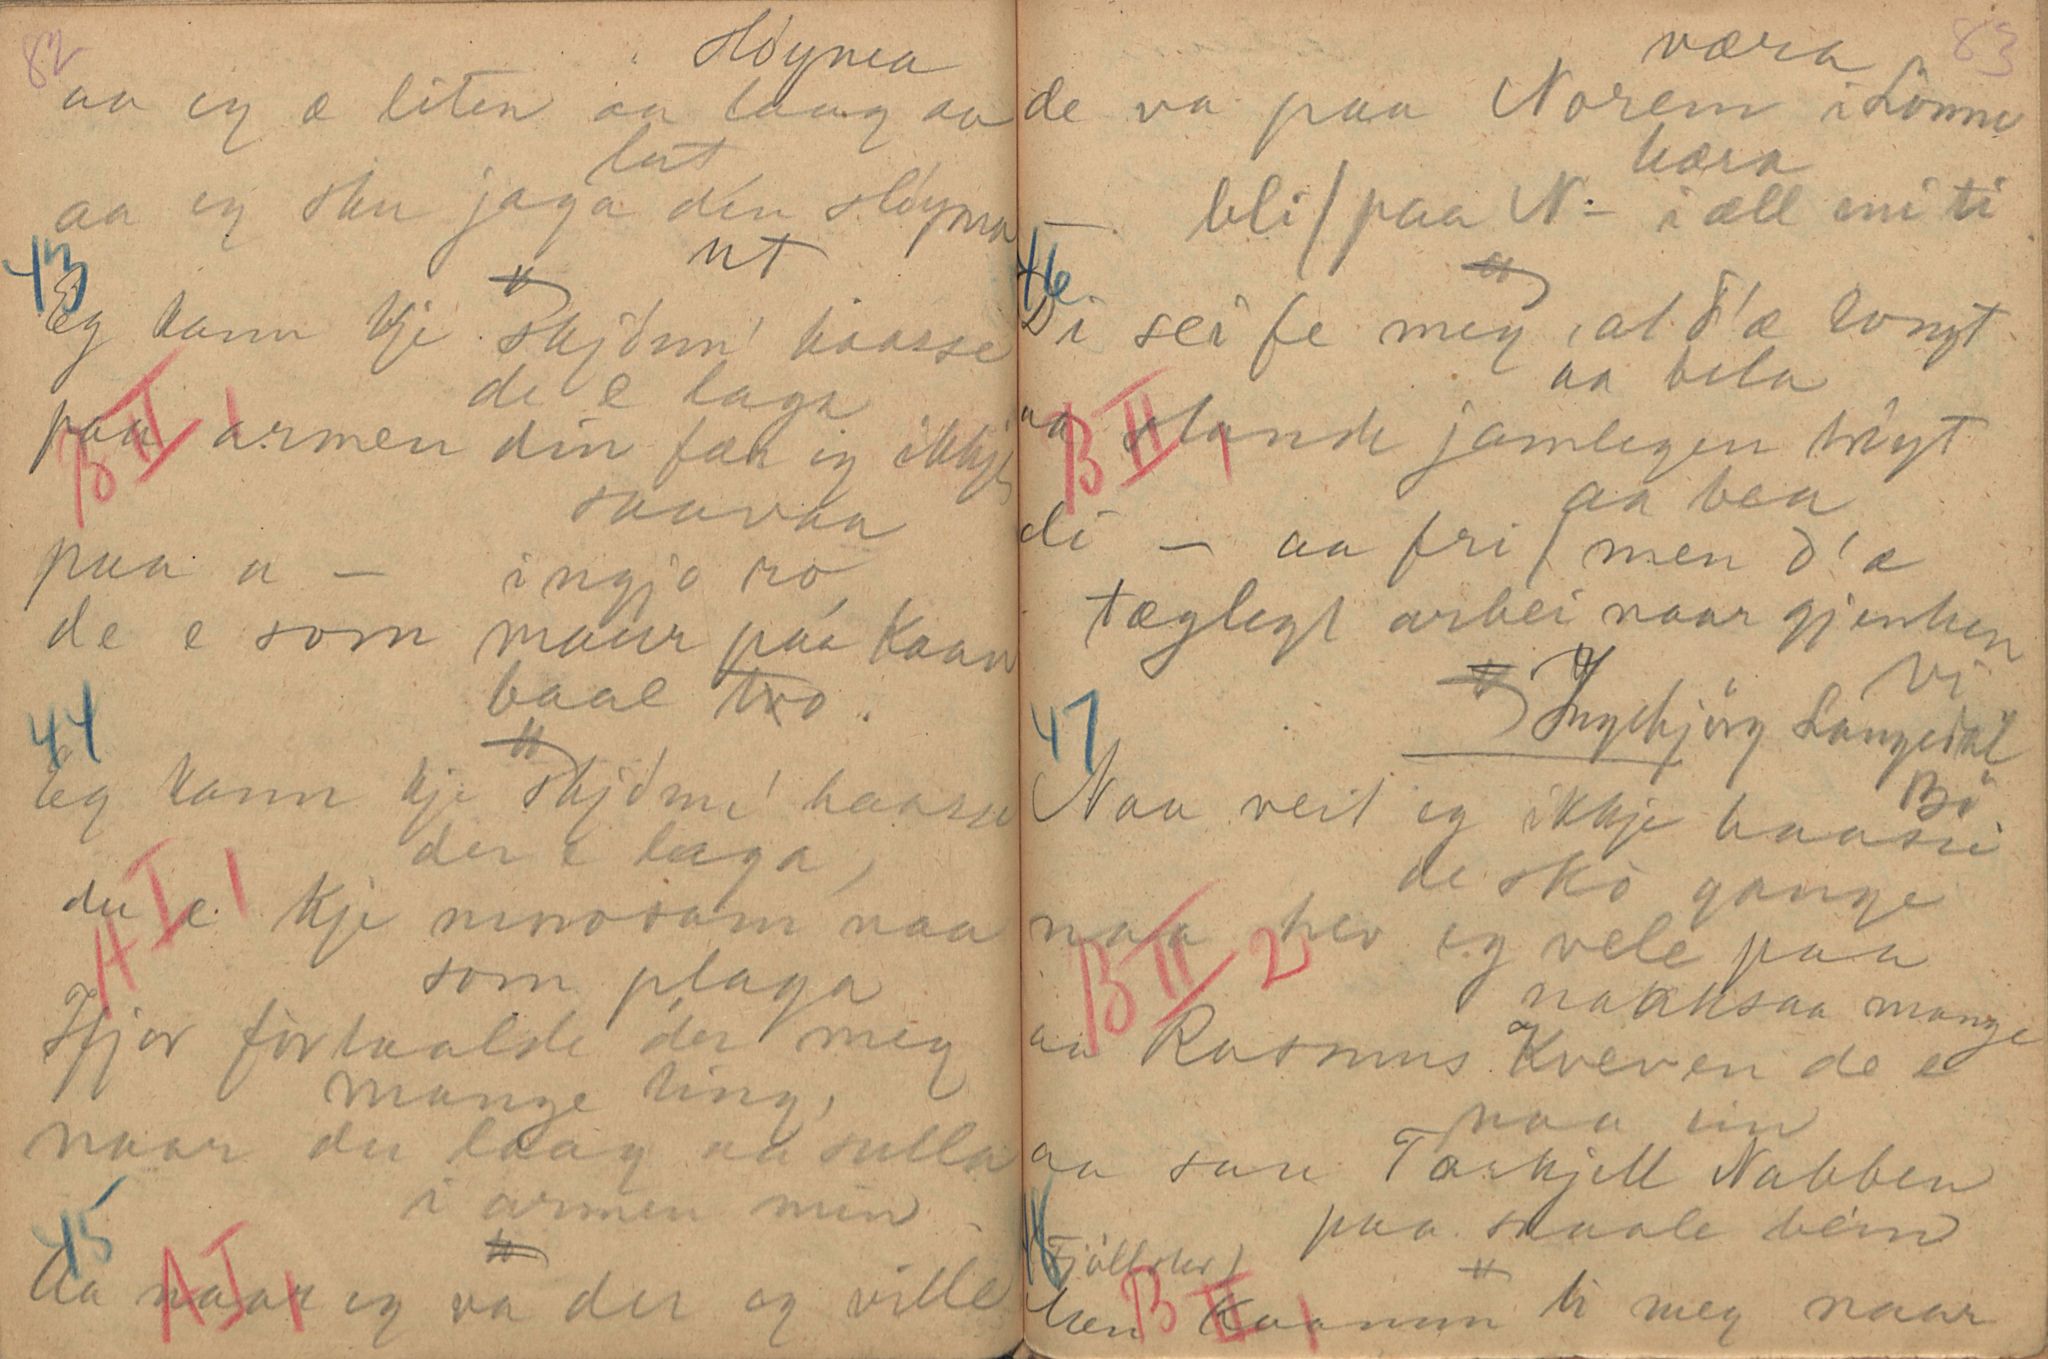 82
sløynea
aa eg æ liten aa laag aa
lut
aa eg sku jaga den sløynea
ut
43
Eg kann kje skjønn' haasse
de e laga
BII 1
paa armen din fær eg ikkje
saavaa
paa a — ingjo ro
de e som maur paa Kaan
baal tro.
44
Eg kann kje skjønn' haasse
der e laga,
AI 1
du e kje morosam naa
som plaga
Ifjor fortaalde du meg
mange ting,
naar du laag aa sulla
i armen min
45
AI 1
Aa naar eg va der eg ville
83
væra
de va paa Norem i Lonne
bæra
— bli / paa N— i all mi ti
46
Di sei fe meg, at d'æ longt
aa bela
BII 1
aa stande jamlegen trygt
aa bea
di — aa fri / men d'æ
tæglegt arbei naar gjenken
vi
Ingebjörg Langedal
Bö
47
Naa veit eg ikkje haasse
de sko gange
BII 2
naa hev eg vele paa
nakksaa mange
aa Rasmus Kveven de e
naa ein
aa saa Torkjell Nabben
paa skaale bein
48
BII 1
ti meg naar